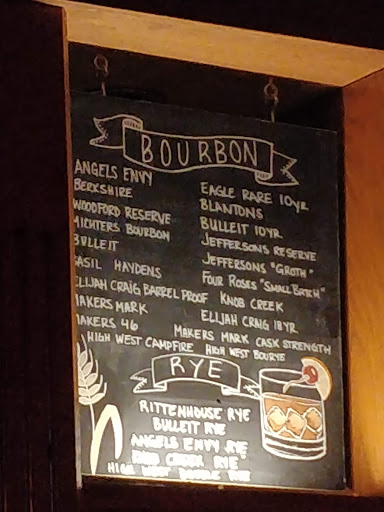 BOURBON
ANGELS ENVY
BERKSHIRE
WOODFORD RESERVE
MICHTERS BOURBON
BULLEIT
BASIL HAYDENS
ELIJAH CRAIG BARREL PROOF
MAKERS MARK
MAKERS 46
EAGLE RARE 10YR
BLANTONS
BULLEIT 10YR
JEFFERSONS RESERVE
JEFFERSONS "GROTH"
FOUR ROSES "SMALL BATCH"
KNOB CREEK
ELIJAH CRAIG 18YR
MAKERS MARK CASK STRENGTH
HIGH WEST CAMPFIRE
HIGH WEST BOURYE
RYE
RITTENHOUSE RYE
BULLEIT RYE
ANGELS ENVY RYE
KNOB CREEK RYE
HIGH WEST DOUBLE RYE